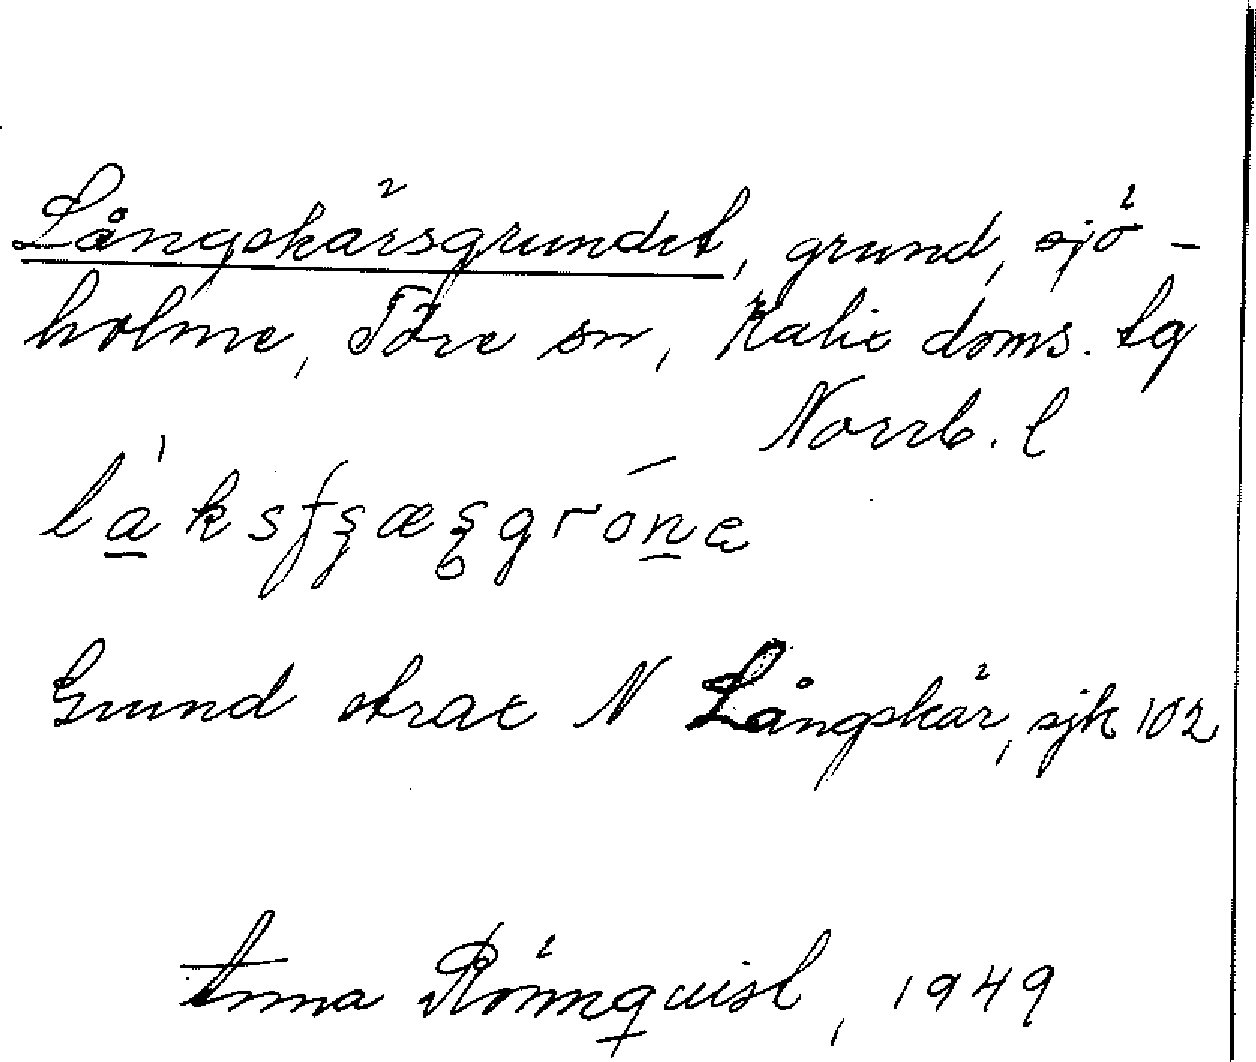 Långskärsgrundet, grund, sjö-
holme, Töre sn, Kalix doms. tg
Norrb. l
Grund strax N Långskär, sjk 102
Anna Rönnqvist, 1949